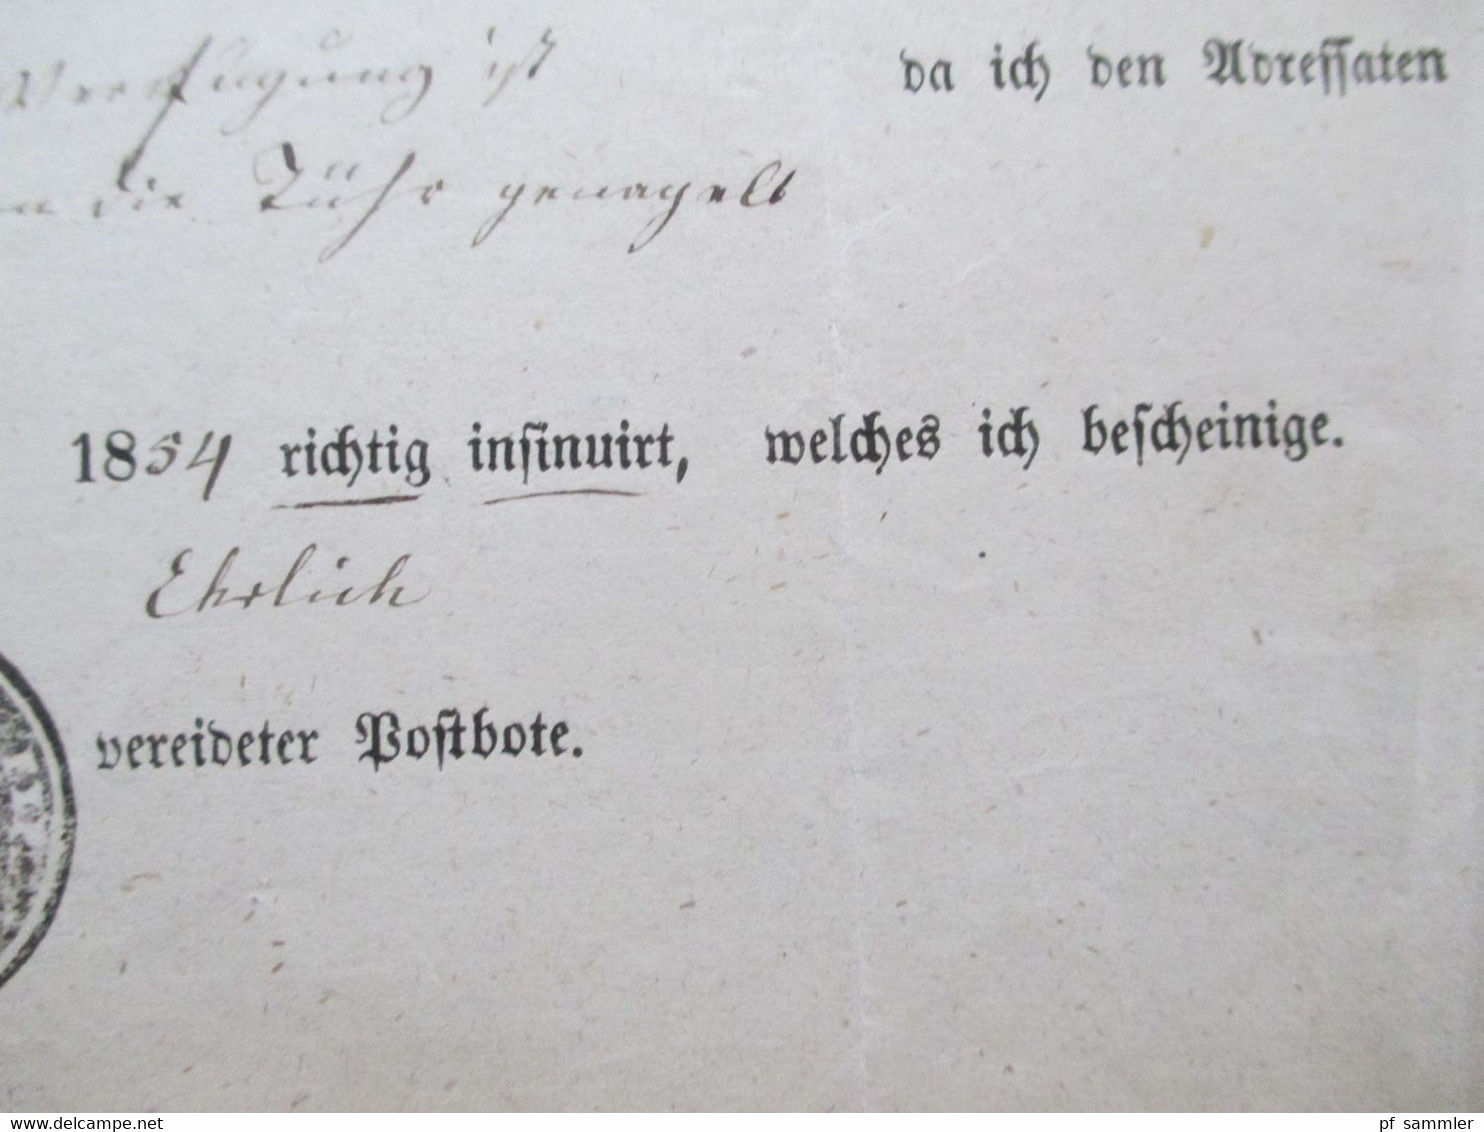 Verfügung ist da ich den Adressaten
n die Tühr genagelt
1854 richtig insinuirt, welches ich bescheinige.
Ehrlich
vereideter Postbote.
www.delcampe.net
pf_sammler